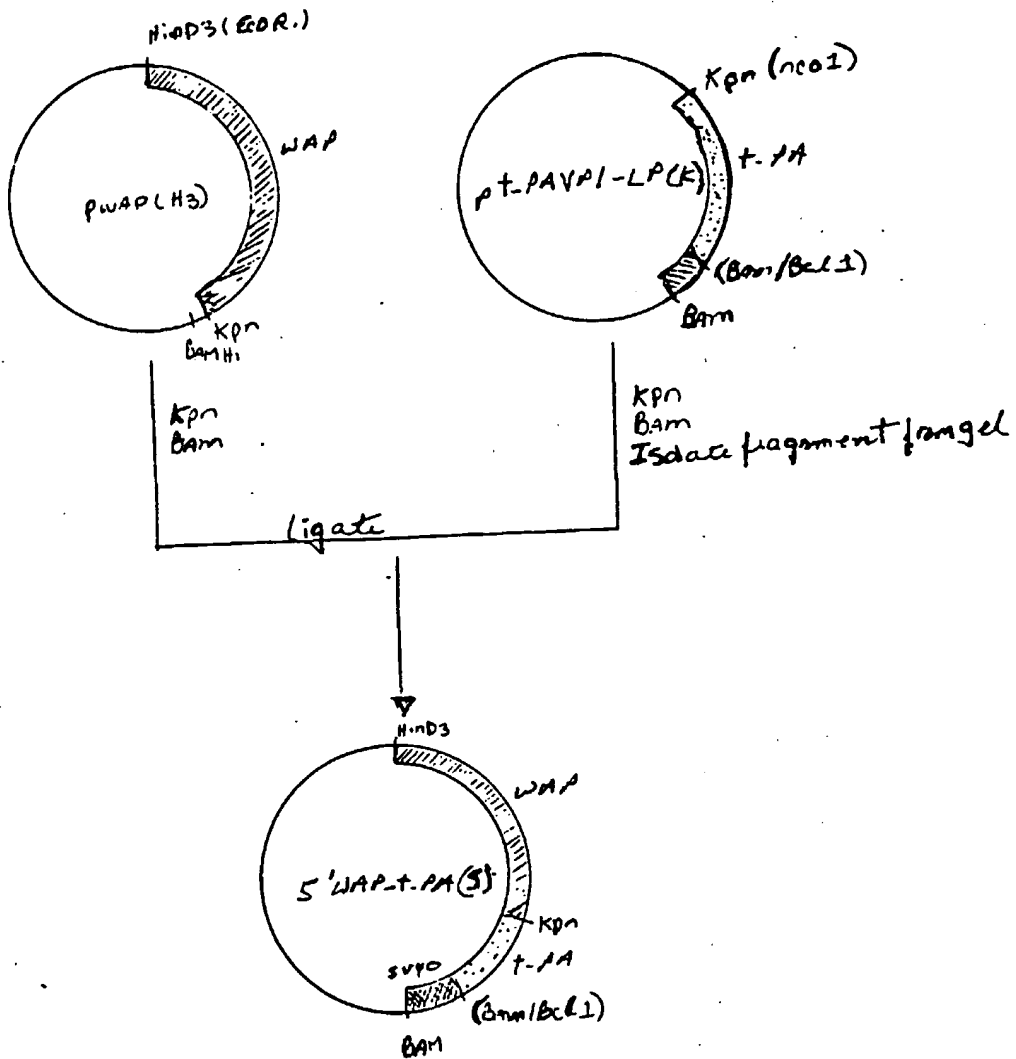 HinD3 (EcoR.)
WAP
pWAP(H3)
Kpn
BAMHI
Kpn (nco1)
t-PA
pt-PAVP1-LP(K)
(Bam/Bcl1)
BAM
Kpn
BAM
Kpn
BAM
Isolate fragment from gel
Ligate
HinD3
WAP
5'WAP-t-PA(S)
Kpn
t-PA
SV40
(Bam/Bcl1)
BAM